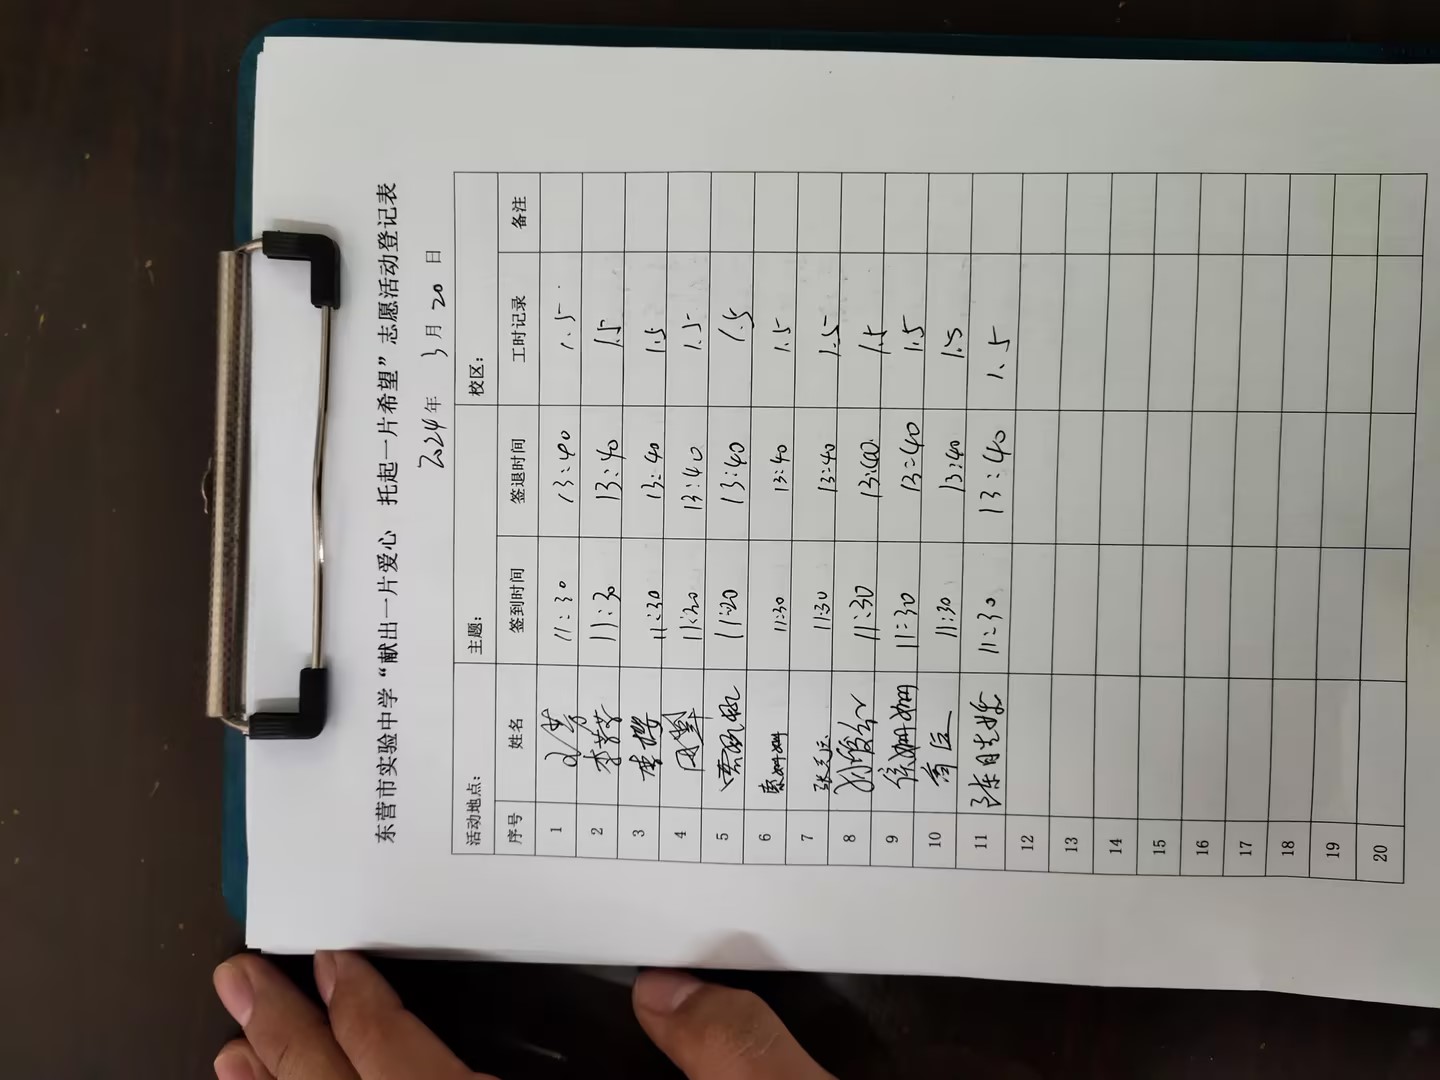 东营市实验中学“献出一片爱心 托起一片希望”志愿活动登记表
2024年 3月 20 日
活动地点: 主题: 校区:
序号 姓名 签到时间 签退时间 工时记录 备注
1 11:30 13:40 1.5
2 11:30 13:40 1.5
3 李樱 11:30 13:40 1.5
4 11:20 13:40 1.5
5 11:20 13:40 1.5
6 11:30 13:40 1.5
7 11:30 13:40 1.5
8 11:30 13:40 1.5
9 徐姗姗 11:30 13:40 1.5
10 11:30 13:40 1.5
11 11:30 13:40 1.5
12
13
14
15
16
17
18
19
20